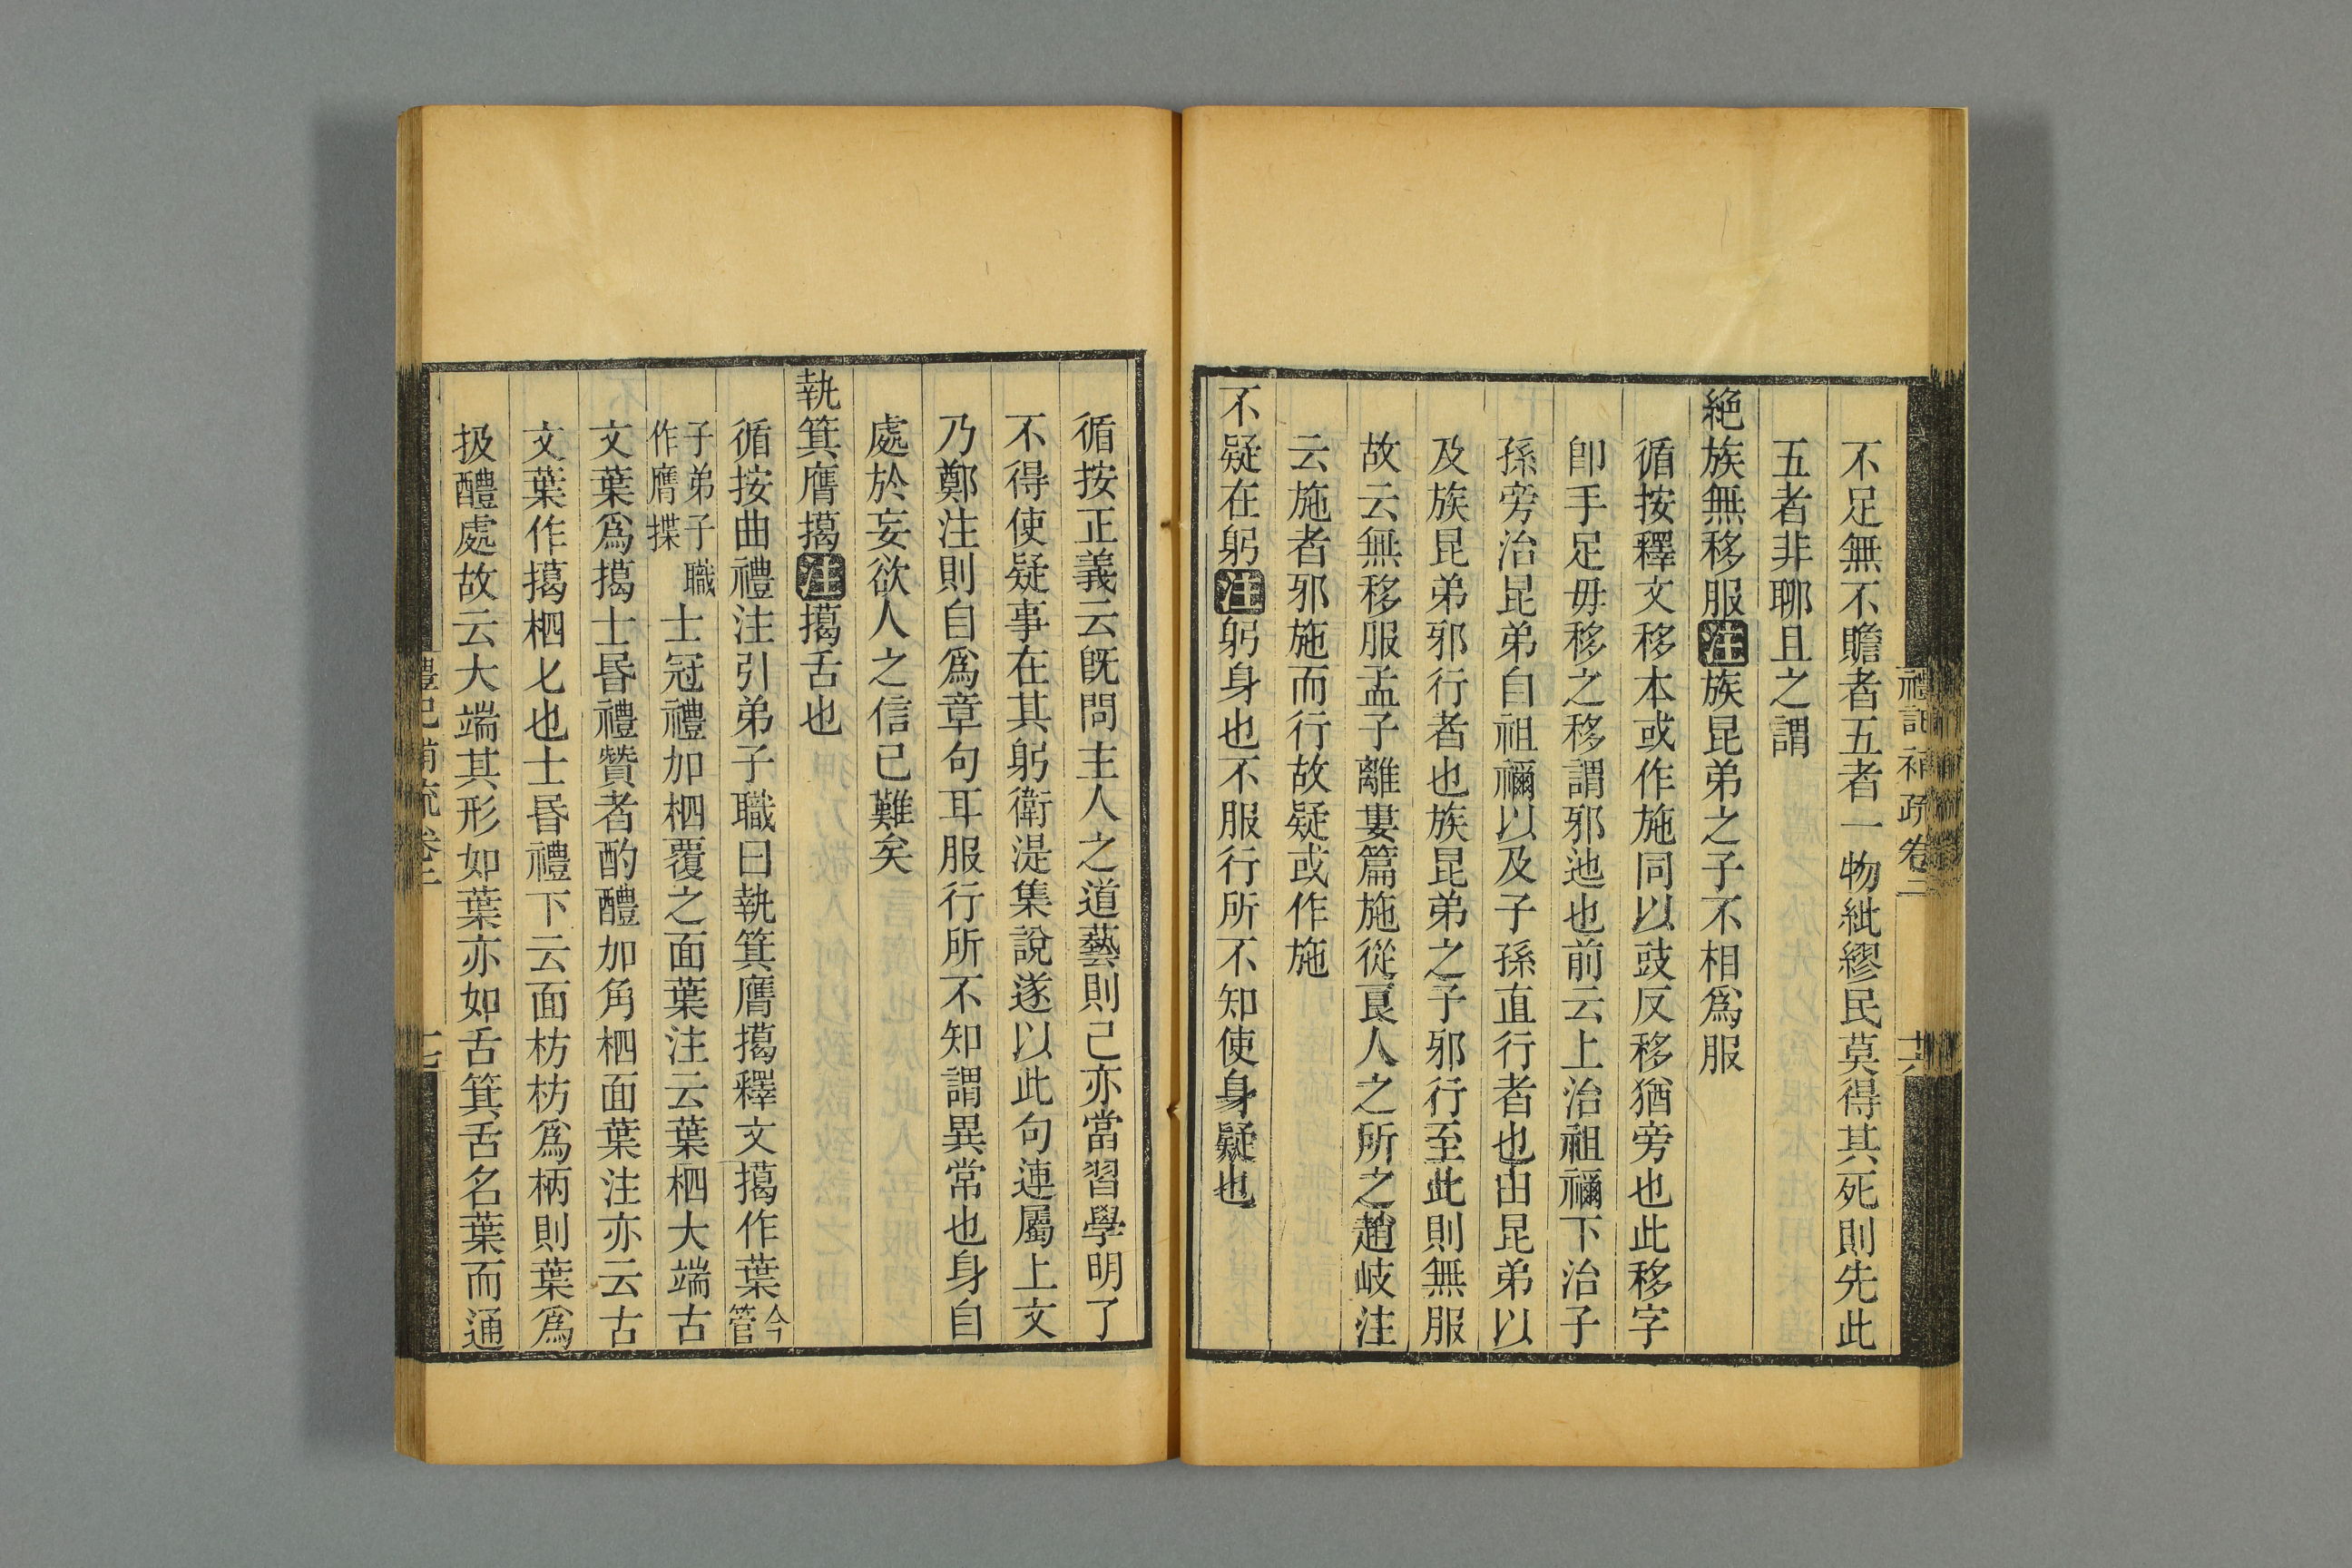 禮記補疏卷二
十六
不足無不贍者五者一物紕繆民莫得其死則先此
五者非聊且之謂
絶族無移服注族昆弟之子不相爲服
循按釋文移本或作施同以豉反移猶旁也此移字
卽手足毋移之移謂邪迤也前云上治祖禰下治子
孫旁治昆弟自祖禰以及子孫直行者也由昆弟以
及族昆弟邪行者也族昆弟之子邪行至此則無服
故云無移服孟子離婁篇施從良人之所之趙岐注
云施者邪施而行故疑或作施
不疑在躬注躬身也不服行所不知使身疑也
循按正義云旣問主人之道藝則己亦當習學明了
不得使疑事在其躬衛湜集說遂以此句連屬上文
乃鄭注則自爲章句耳服行所不知謂異常也身自
處於妄欲人之信已難矣
執箕膺擖注擖舌也
循按曲禮注引弟子職曰執箕膺擖釋文擖作葉今管
子弟子職作膺揲士冠禮加柶覆之面葉注云葉柶大端古
文葉爲擖士昏禮贊者酌醴加角柶面葉注亦云古
文葉作擖柶匕也士昏禮下云面枋枋爲柄則葉爲
扱醴處故云大端其形如葉亦如舌箕舌名葉而通
禮記補疏卷二
十七